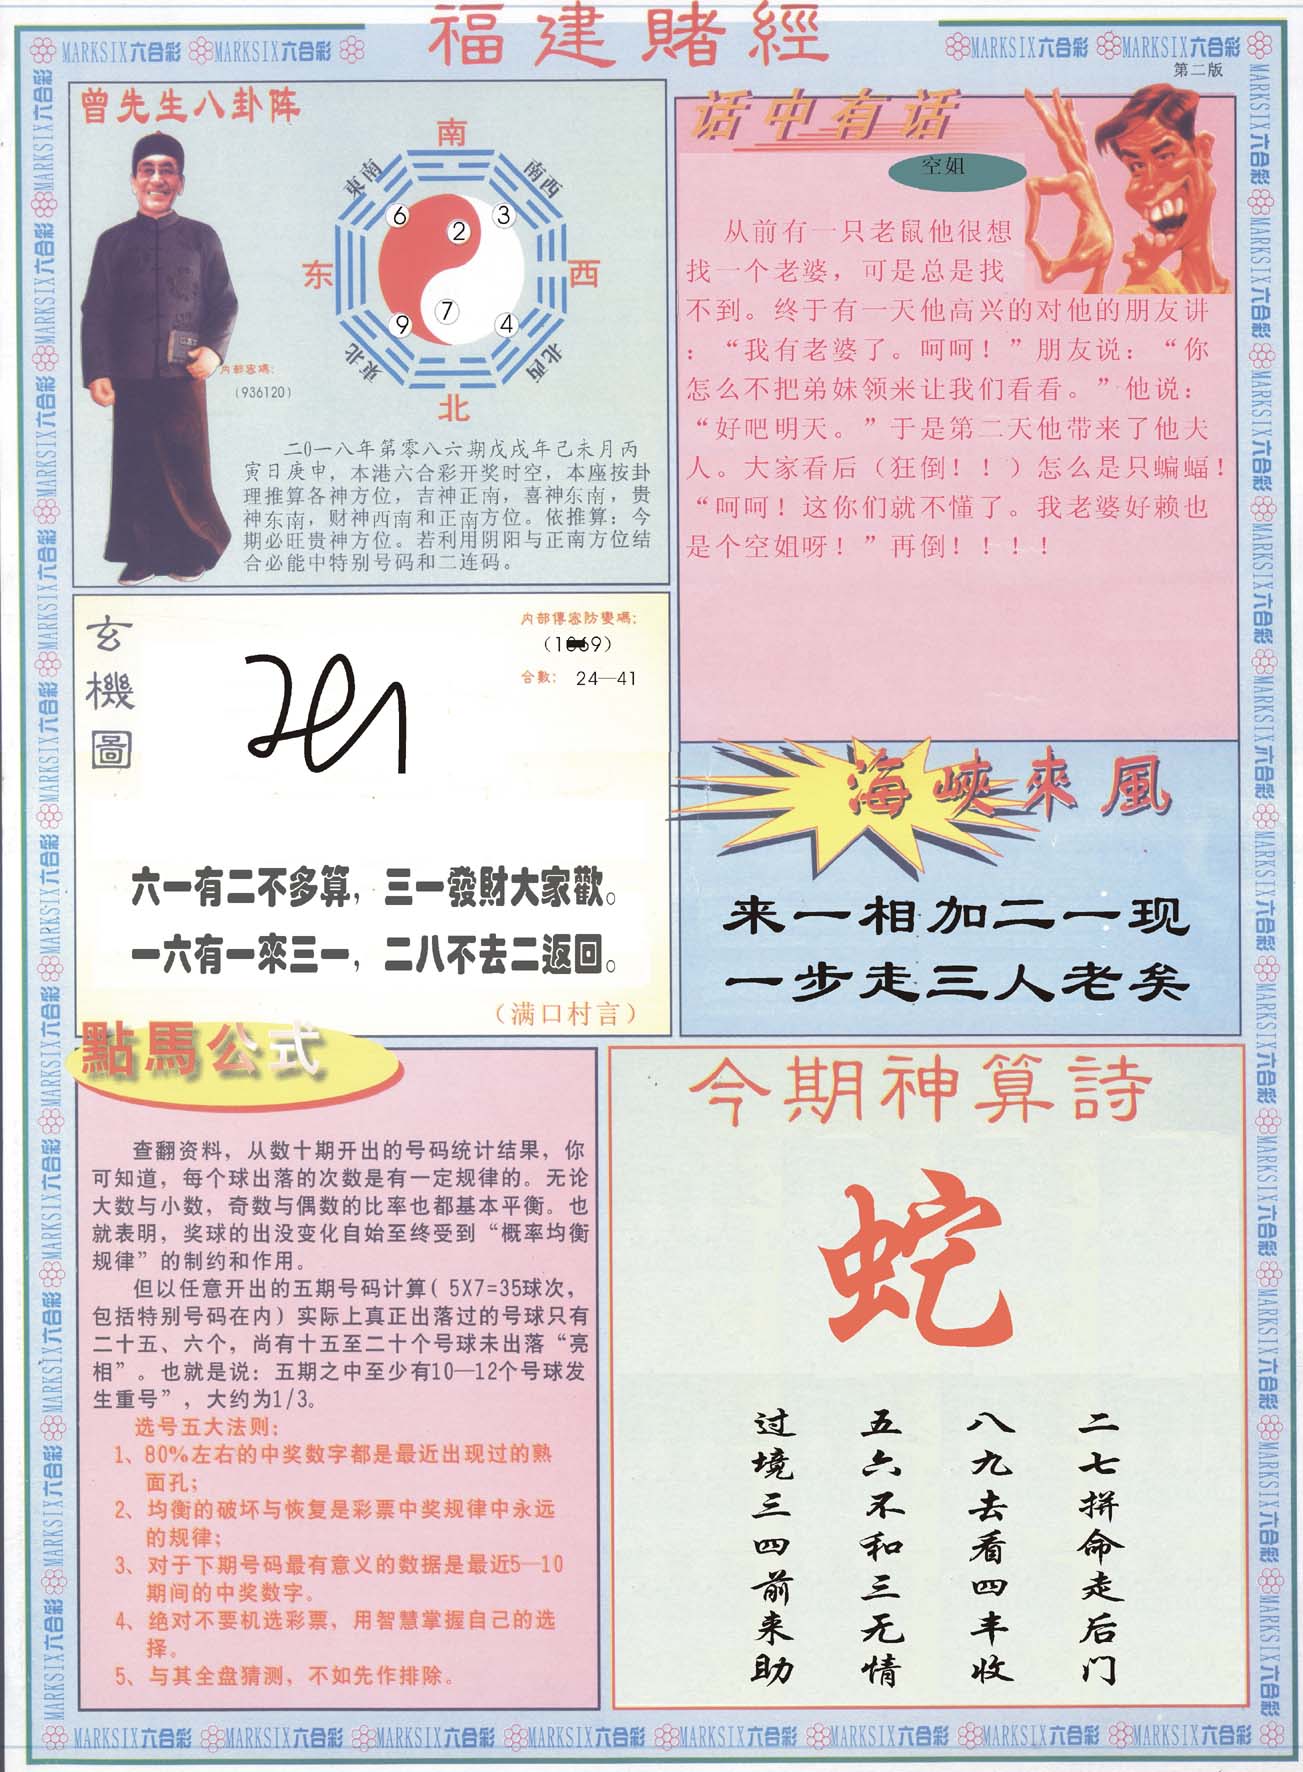 福建賭經
MARKSIX六合彩 MARKSIX六合彩
MARKSIX六合彩 MARKSIX六合彩
第二版
曾先生八卦阵
南
東南
南西
6
2
3
东
西
7
9
4
東北
北西
北
内部密碼:
(936120)
二0一八年第零八六期戊戌年己未月丙
寅日庚申，本港六合彩开奖时空，本座按卦
理推算各神方位，吉神正南，喜神东南，贵
神东南，财神西南和正南方位。依推算：今
期必旺贵神方位。若利用阴阳与正南方位结
合必能中特别号码和二连码。
话中有话
空姐
从前有一只老鼠他很想
找一个老婆，可是总是找
不到。终于有一天他高兴的对他的朋友讲
：“我有老婆了。呵呵！”朋友说：“你
怎么不把弟妹领来让我们看看。”他说：
“好吧明天。”于是第二天他带来了他夫
人。大家看后（狂倒！！）怎么是只蝙蝠！
“呵呵！这你们就不懂了。我老婆好赖也
是个空姐呀！”再倒！！！！
玄機圖
内部傳密防變碼:
合數: 24—41
六一有二不多算，三一發財大家歡。
一六有一來三一，二八不去二返回。
（满口村言）
海峽來風
来一相加二一现
一步走三人老矣
點馬公式
查翻资料，从数十期开出的号码统计结果，你
可知道，每个球出落的次数是有一定规律的。无论
大数与小数，奇数与偶数的比率也都基本平衡。也
就表明，奖球的出没变化自始至终受到“概率均衡
规律”的制约和作用。
但以任意开出的五期号码计算( 5X7=35球次，
包括特别号码在内）实际上真正出落过的号球只有
二十五、六个，尚有十五至二十个号球未出落“亮
相”。也就是说：五期之中至少有10—12个号球发
生重号”，大约为1/3。
选号五大法则：
1、80%左右的中奖数字都是最近出现过的熟
面孔；
2、均衡的破坏与恢复是彩票中奖规律中永远
的规律；
3、对于下期号码最有意义的数据是最近5—10
期间的中奖数字。
4、绝对不要机选彩票，用智慧掌握自己的选
择。
5、与其全盘猜测，不如先作排除。
今期神算詩
蛇
二七拼命走后门
八九去看四丰收
五六不和三无情
过境三四前来助
MARKSIX六合彩 MARKSIX六合彩 MARKSIX六合彩 MARKSIX六合彩 MARKSIX六合彩 MARKSIX六合彩 MARKSIX六合彩 MARKSIX六合彩